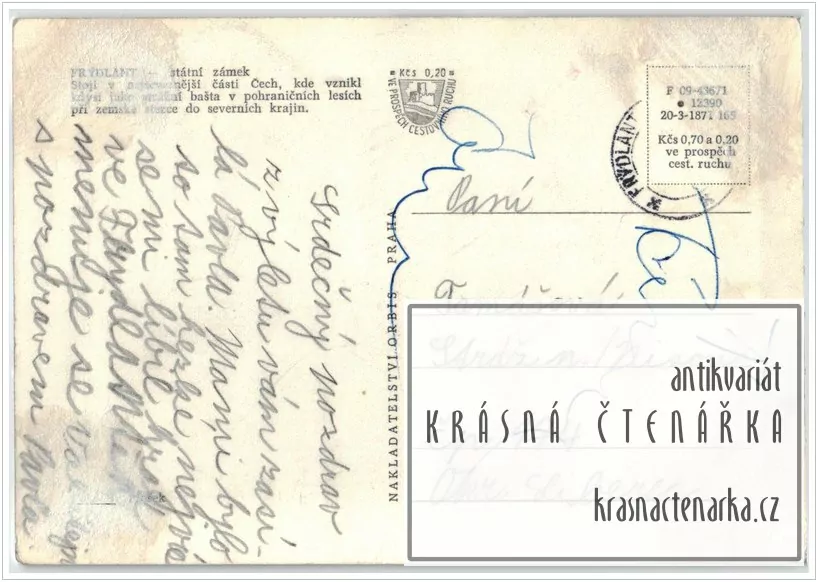 FRÝDLANT — státní zámek
Stojí v nejsevernější části Čech, kde vznikl
kdysi jako strážní bašta v pohraničních lesích
při zemské stezce do severních krajin.
Kčs 0,20
VE PROSPĚCH CESTOVNÍHO RUCHU
F 09-43671
12390
20-3-1871 165
Kčs 0,70 a 0,20
ve prospěch
cest. ruchu
FRÝDLANT
NAKLADATELSTVÍ ORBIS PRAHA
Srdečný pozdrav
z výletu vám zasí-
lá Pavla. Mami bylo
so tam hezke nejvá
se mi líbil hrad
ve Frýdlantě
s pozdravem Pavla
Paní
Tomášová
Stráž n.
antikvariát
KRÁSNÁ ČTENÁŘKA
krasnactenarka.cz